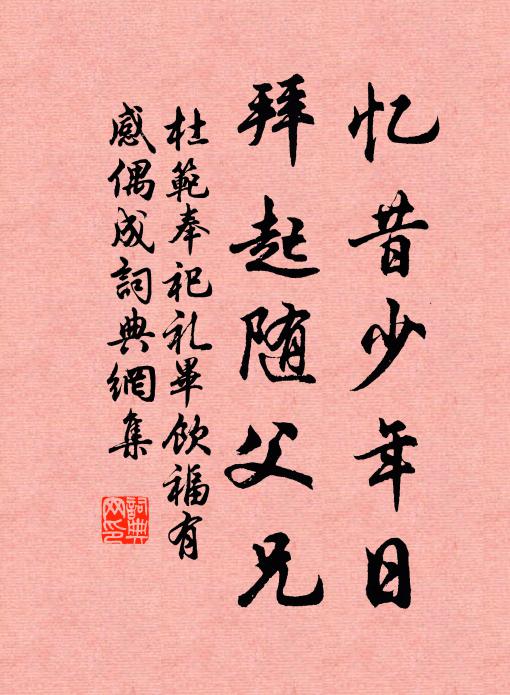 忆昔少年日
拜起随父兄
杜範奉祀礼畢饮福有
感偶成詞典網集
詞典
网印